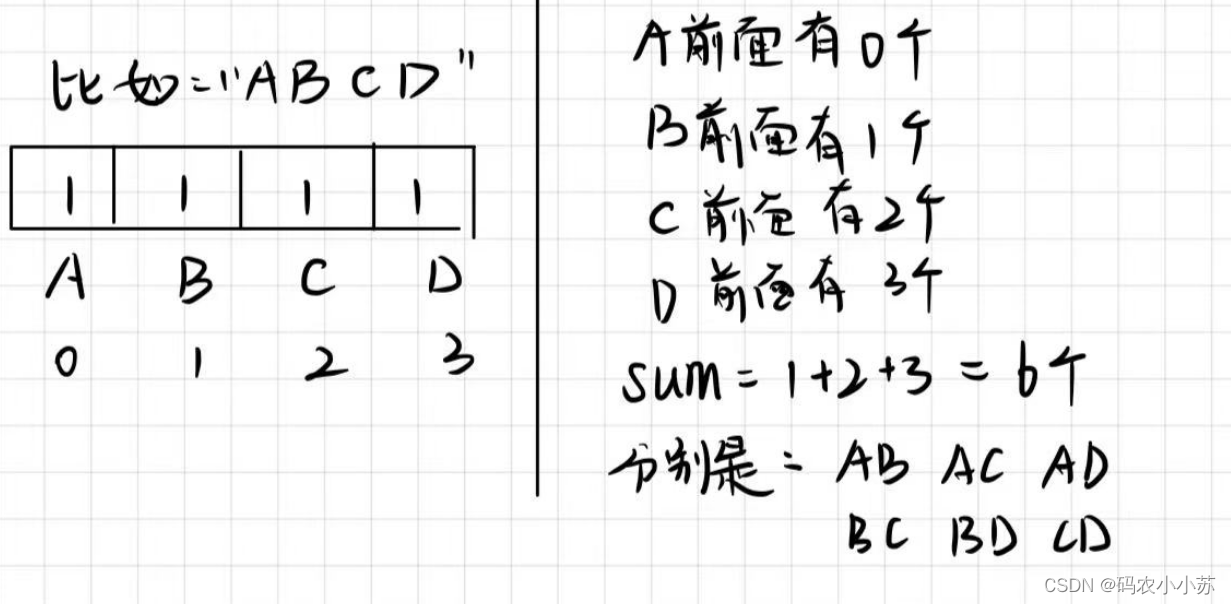 比如："ABCD"
1 1 1 1
A B C D
0 1 2 3
A前面有0个
B前面有1个
C前面有2个
D前面有3个
sum = 1+2+3 = 6个
分别是： AB AC AD
BC BD CD
CSDN @码农小小苏